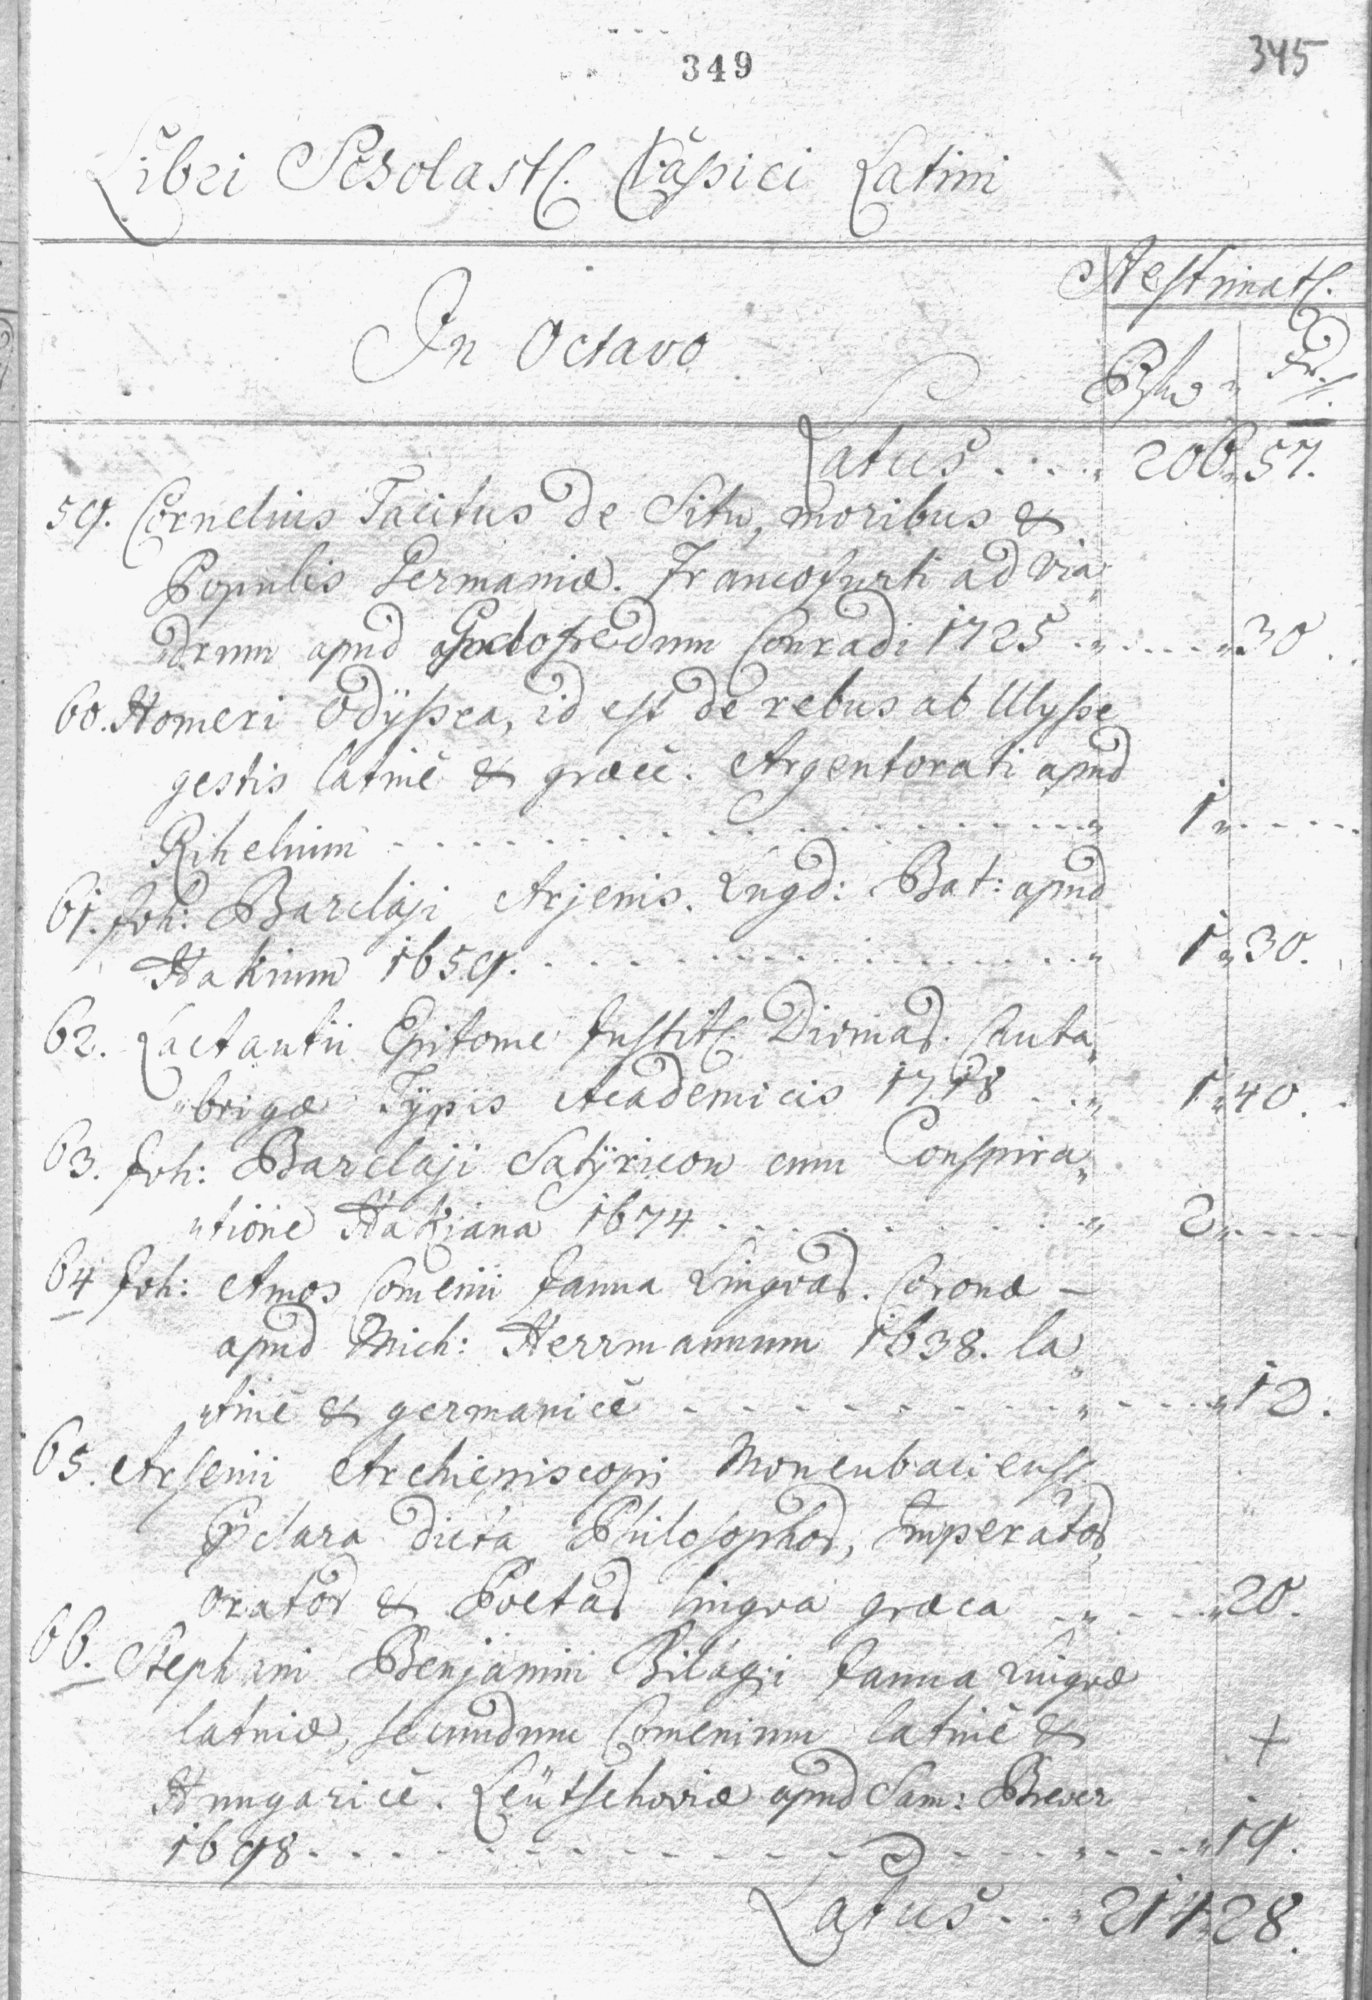 349
345
Libri Scholast. Classici Latini
Aestimat.
In Octavo
xr.
Latus .... 206 " 57.
59. Cornelius Tacitus de Situ, moribus &
Populis Germaniæ. Francofurti ad Via"
drum apud Godofredum Conradi 1725 . " .... " 30
60. Homeri Odÿssea, id est de rebus ab Ulysse
gestis latinè & græcè. Argentorati apud
Rihelium .................... " 1 " ......
61. Joh: Barclaji Arjenis. Lugd: Bat: apud
Hakium 1659. .................. " 1 " 30.
62. Lactantii Epitome Instit. Divinar. Canta"
"brigæ Tÿpis Academicis 1718 ... " 1 " 40.
63. Joh: Barclaji Satÿricon cum Conspira"
"tione Hakiana 1674 ........... " 2 " .....
64 Joh: Amos Comenii Janua Lingvar. Coronæ –
apud Mich: Herrmannum 1638. la"
"tinè & germanicè ............ " .... " 12.
65. Arsenii Archiepiscopi Monenbaciens.
Pclara dicta Philosophor, Imperator,
Orator & Poetar lingva græca .. " .... " 20.
66. Stephani Benjamini Bilagi Janua Lingvæ
latinæ, secundum Comenium latinè &
+
Hungaricè. Leütschoviæ apud Sam: Brever
1698. .................... " ..... " 19.
Latus ... " 214 " 28.